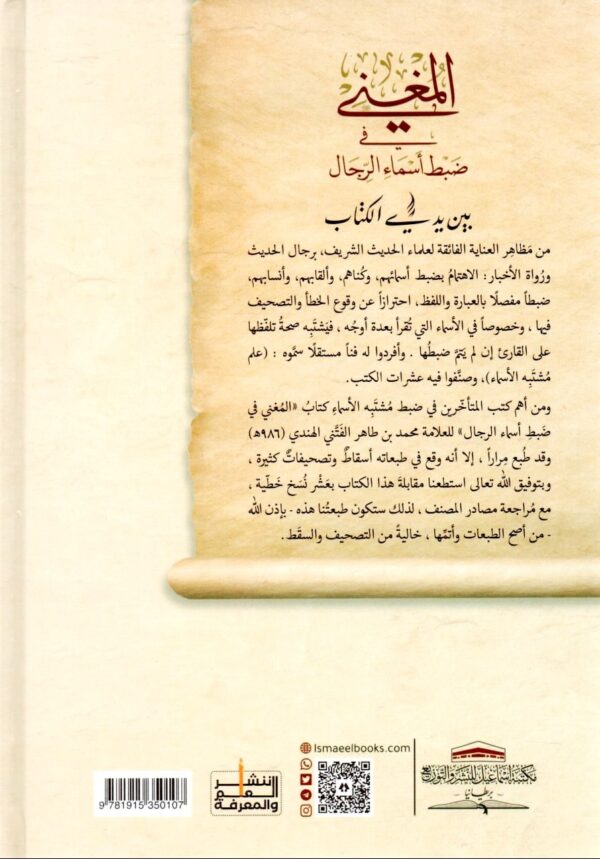 المُغْنِي
في
ضَبْط أَسْمَاءِ الرِّجَال
بين يدي الكتاب
من مَظاهِر العناية الفائقة لعلماء الحديث الشريف، برجال الحديث
ورُواة الأخبار: الاهتمامُ بضبط أسمائهم، وكُناهم، وألقابهم، وأنسابهم،
ضبطاً مفصلًا بالعبارة واللفظ، احترازاً عن وقوع الخطأ والتصحيف
فيها، وخصوصاً في الأسماء التي تُقرأ بعدة أوجُه، فيَشتَبِه صحةُ تلفّظها
على القارئ إن لم يَتمَّ ضبطُها. وأفردوا له فناً مستقلًا سمَّوه: (علم
مُشتَبِه الأسماء)، وصنَّفوا فيه عشرات الكتب.
ومن أهم كتب المتأخّرين في ضبط مُشتَبِه الأسماء كتابُ «المُغني في
ضَبطِ أسماء الرجال» للعلامة محمد بن طاهر الفَتَّني الهندي (٩٨٦ه)
وقد طُبع مِراراً، إلا أنه وقع في طبعاته أسقاطٌ وتصحيفاتٌ كثيرة،
وبتوفيق الله تعالى استطعنا مقابلةَ هذا الكتاب بعَشْر نُسَخ خَطّية،
مع مُراجعة مصادر المصنف، لذلك ستكون طبعتُنا هذه - بإذن الله
- من أصح الطبعات وأتمِّها، خاليةً من التصحيف والسقَط.
Ismaeelbooks.com
مكتبة إسماعيل للنشر والتوزيع
- بريطانيا -
لننشر
العلم
والمعرفة
9 781915 350107